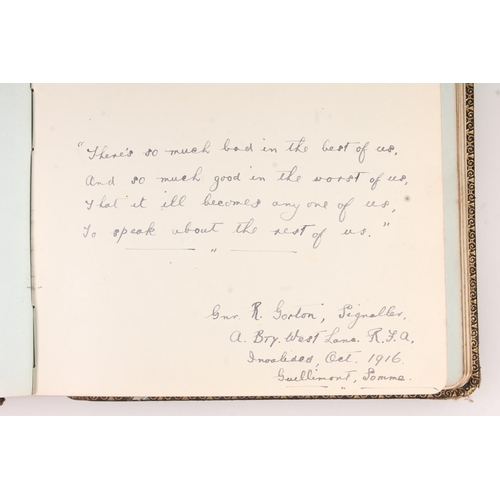 "There's so much bad in the best of us,
And so much good in the worst of us,
That it ill becomes any one of us,
To speak about the rest of us."
"
Gnr. R. Gorton, Signaller.
A. Bty. West Lancs. R.F.A.
Invalided, Oct. 1916.
Guellimont, Somme.